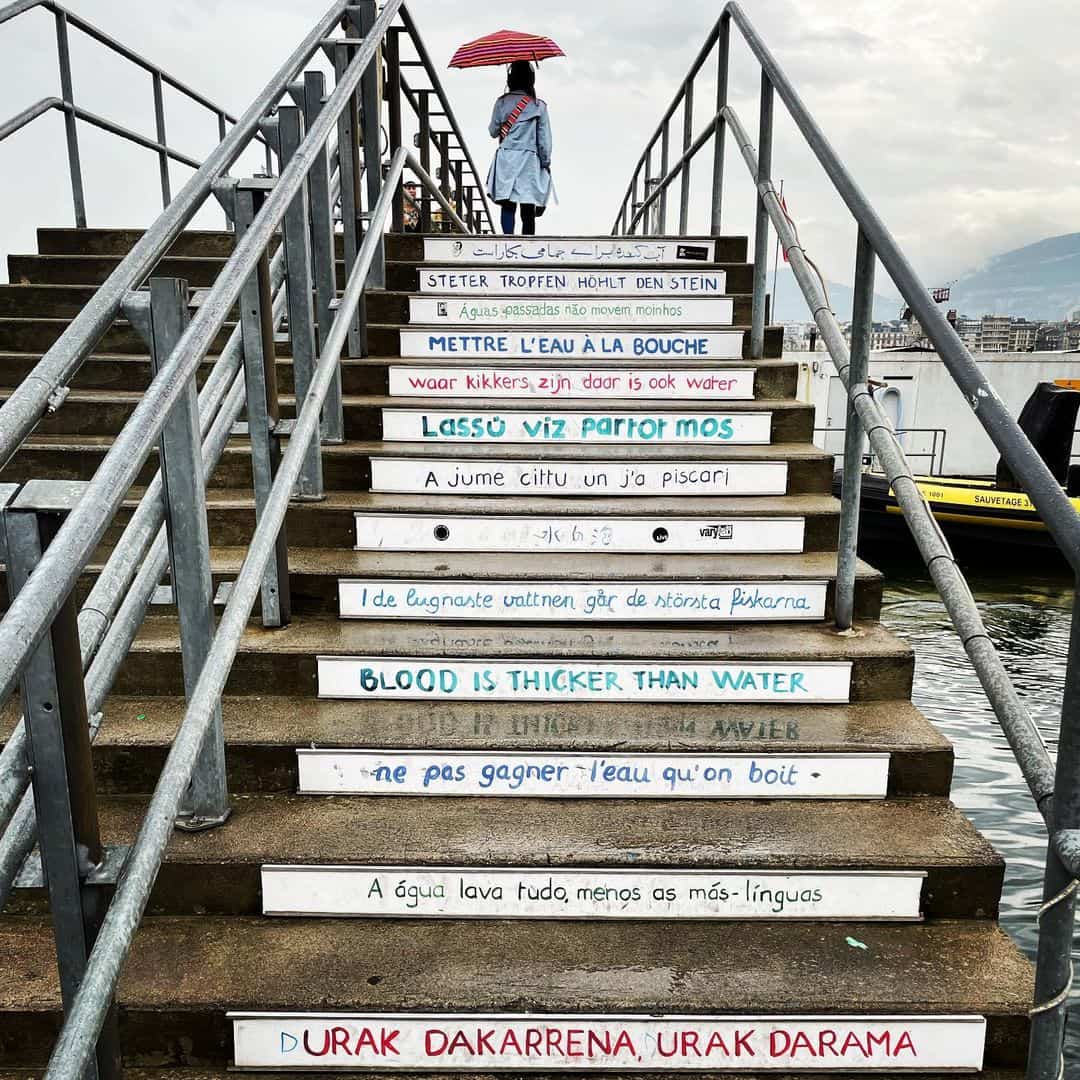 آب برای
STETER TROPFEN HÖHLT DEN STEIN
Águas passadas não movem moinhos
METTRE L'EAU À LA BOUCHE
waar kikkers zijn daar is ook water
Lassú viz partot mos
A jume cittu un j'a piscari
I de lugnaste vattnen går de största fiskarna
SAUVETAGE
BLOOD IS THICKER THAN WATER
ne pas gagner l'eau qu'on boit
A água lava tudo, menos as más-línguas
DURAK DAKARRENA, URAK DARAMA